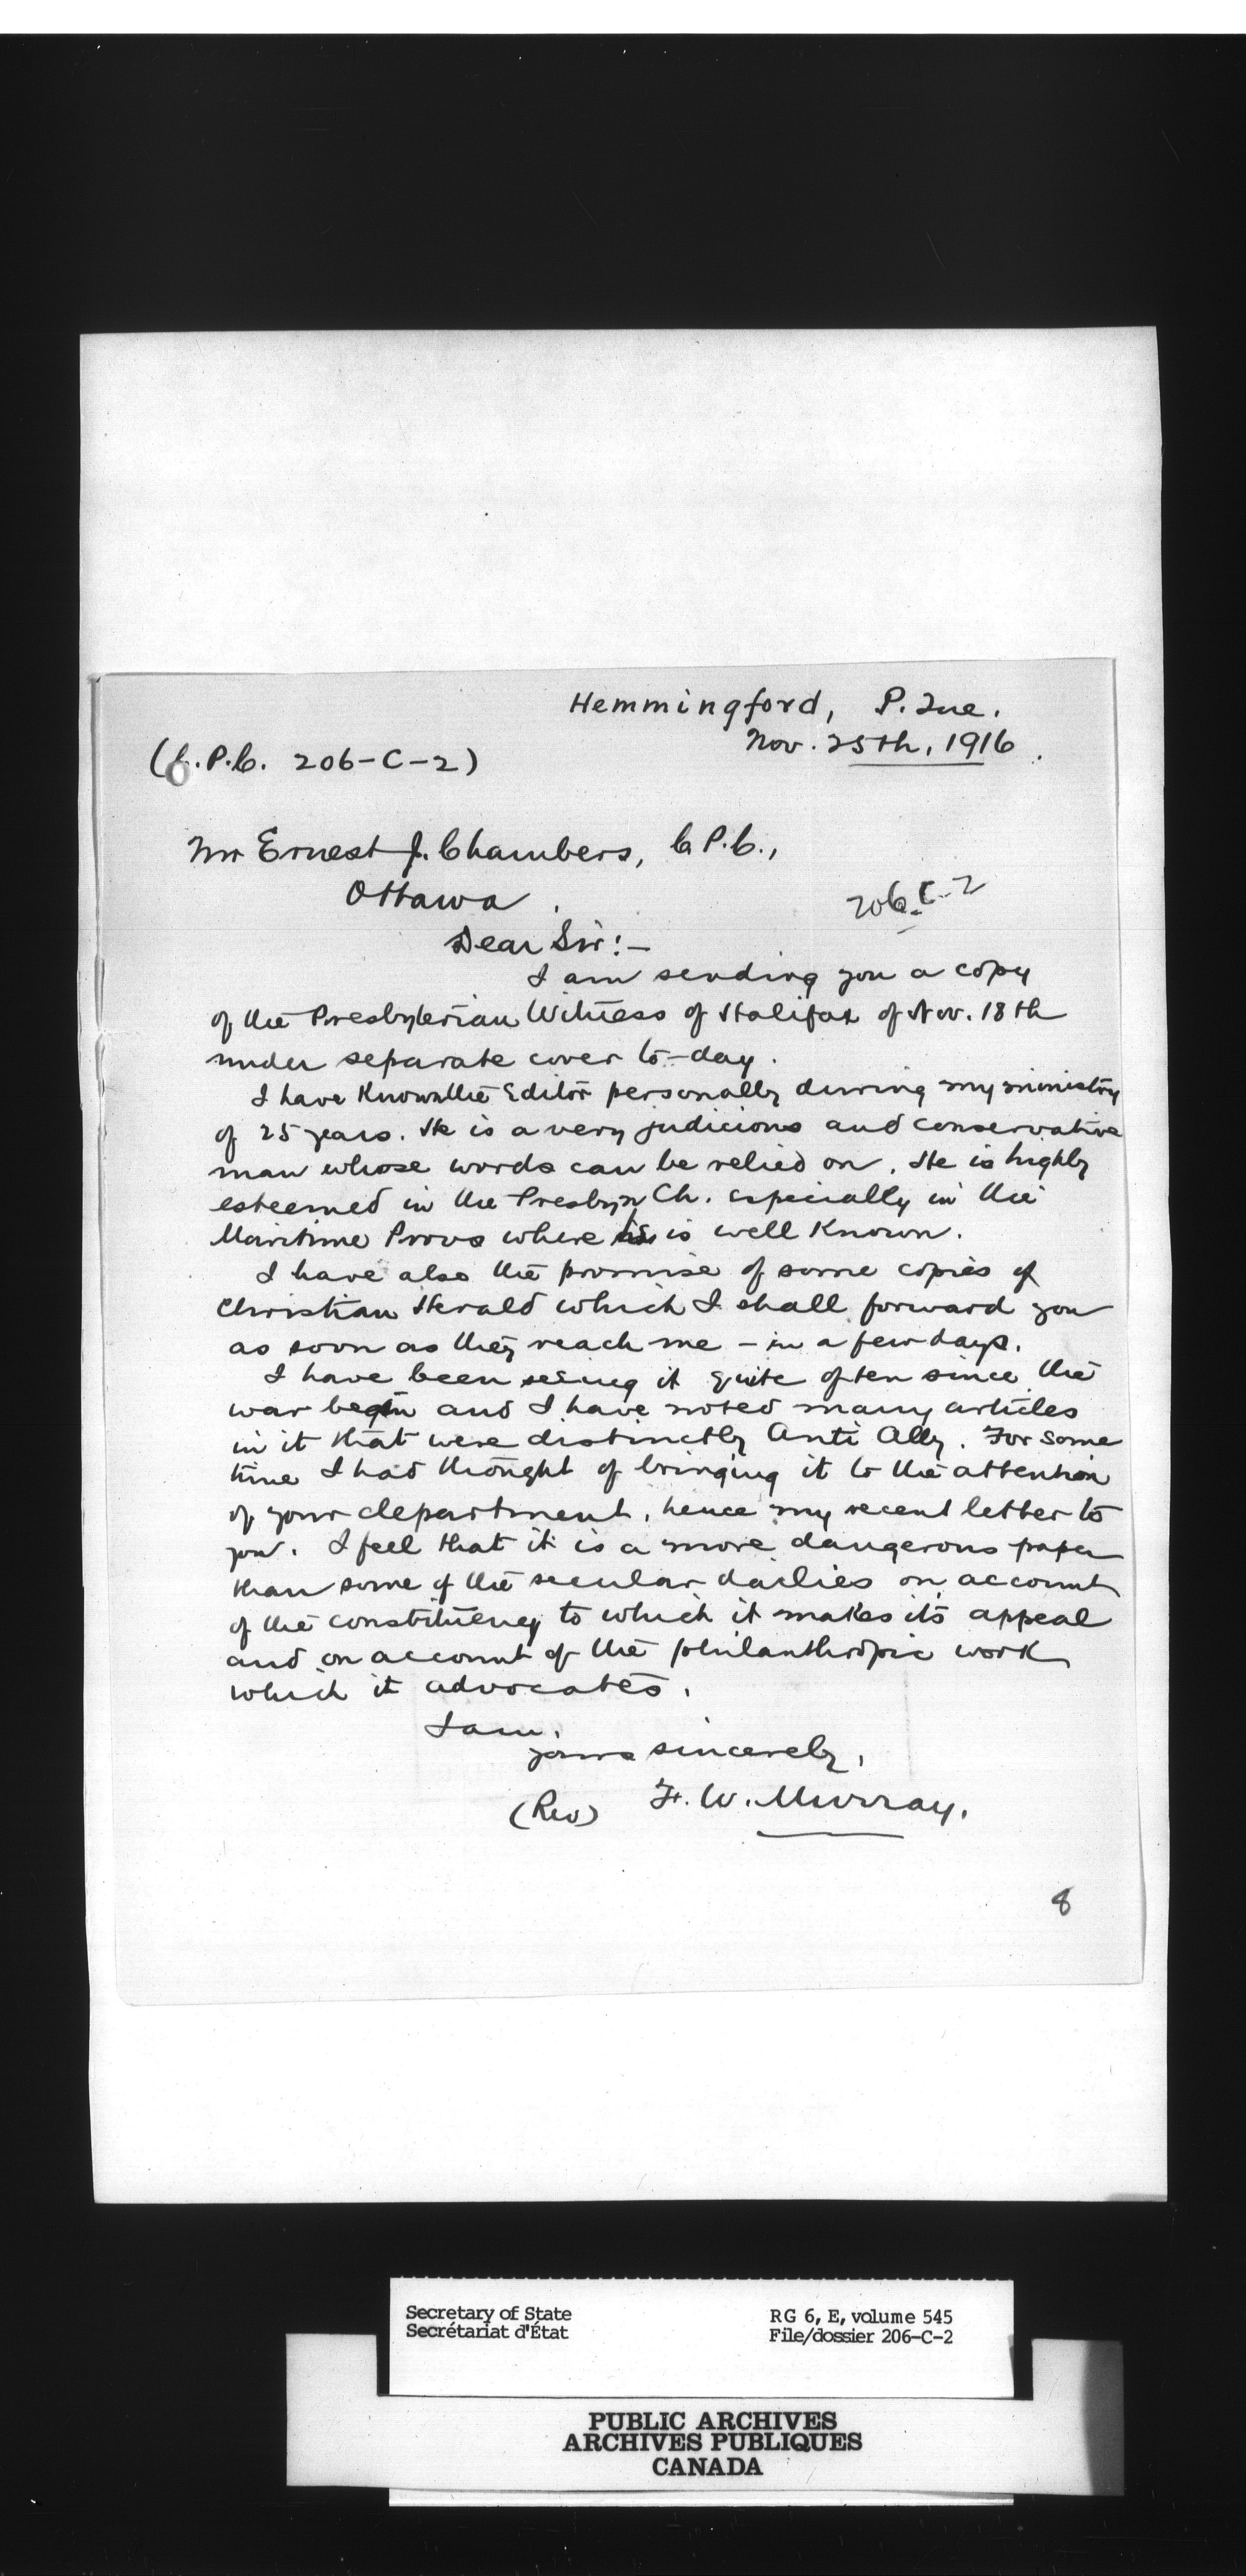 Hemmingford, P. Que.
Nov. 25th, 1916.
(C.P.C. 206-C-2)
Mr Ernest J. Chambers, C.P.C.,
Ottawa.
206-C-2
Dear Sir:-
I am sending you a copy
of the Presbyterian Witness of Halifax of Nov. 18th
under separate cover to-day.
I have known the Editor personally during my ministry
of 25 years. He is a very judicious and conservative
man whose words can be relied on. He is highly
esteemed in the Presbyn Ch. especially in the
Maritime Provs where he is well known.
I have also the promise of some copies of
Christian Herald which I shall forward you
as soon as they reach me - in a few days.
I have been seeing it quite often since the
war began and I have noted many articles
in it that were distinctly Anti Ally. For some
time I had thought of bringing it to the attention
of your department, hence my recent letter to
you. I feel that it is a more dangerous paper
than some of the secular dailies on account
of the constituency to which it makes its appeal
and on account of the philanthropic work
which it advocates.
I am,
yours sincerely,
(Rev) H. W. Murray.
8
Secretary of State
Secrétariat d'État
RG 6, E, volume 545
File/dossier 206-C-2
PUBLIC ARCHIVES
ARCHIVES PUBLIQUES
CANADA